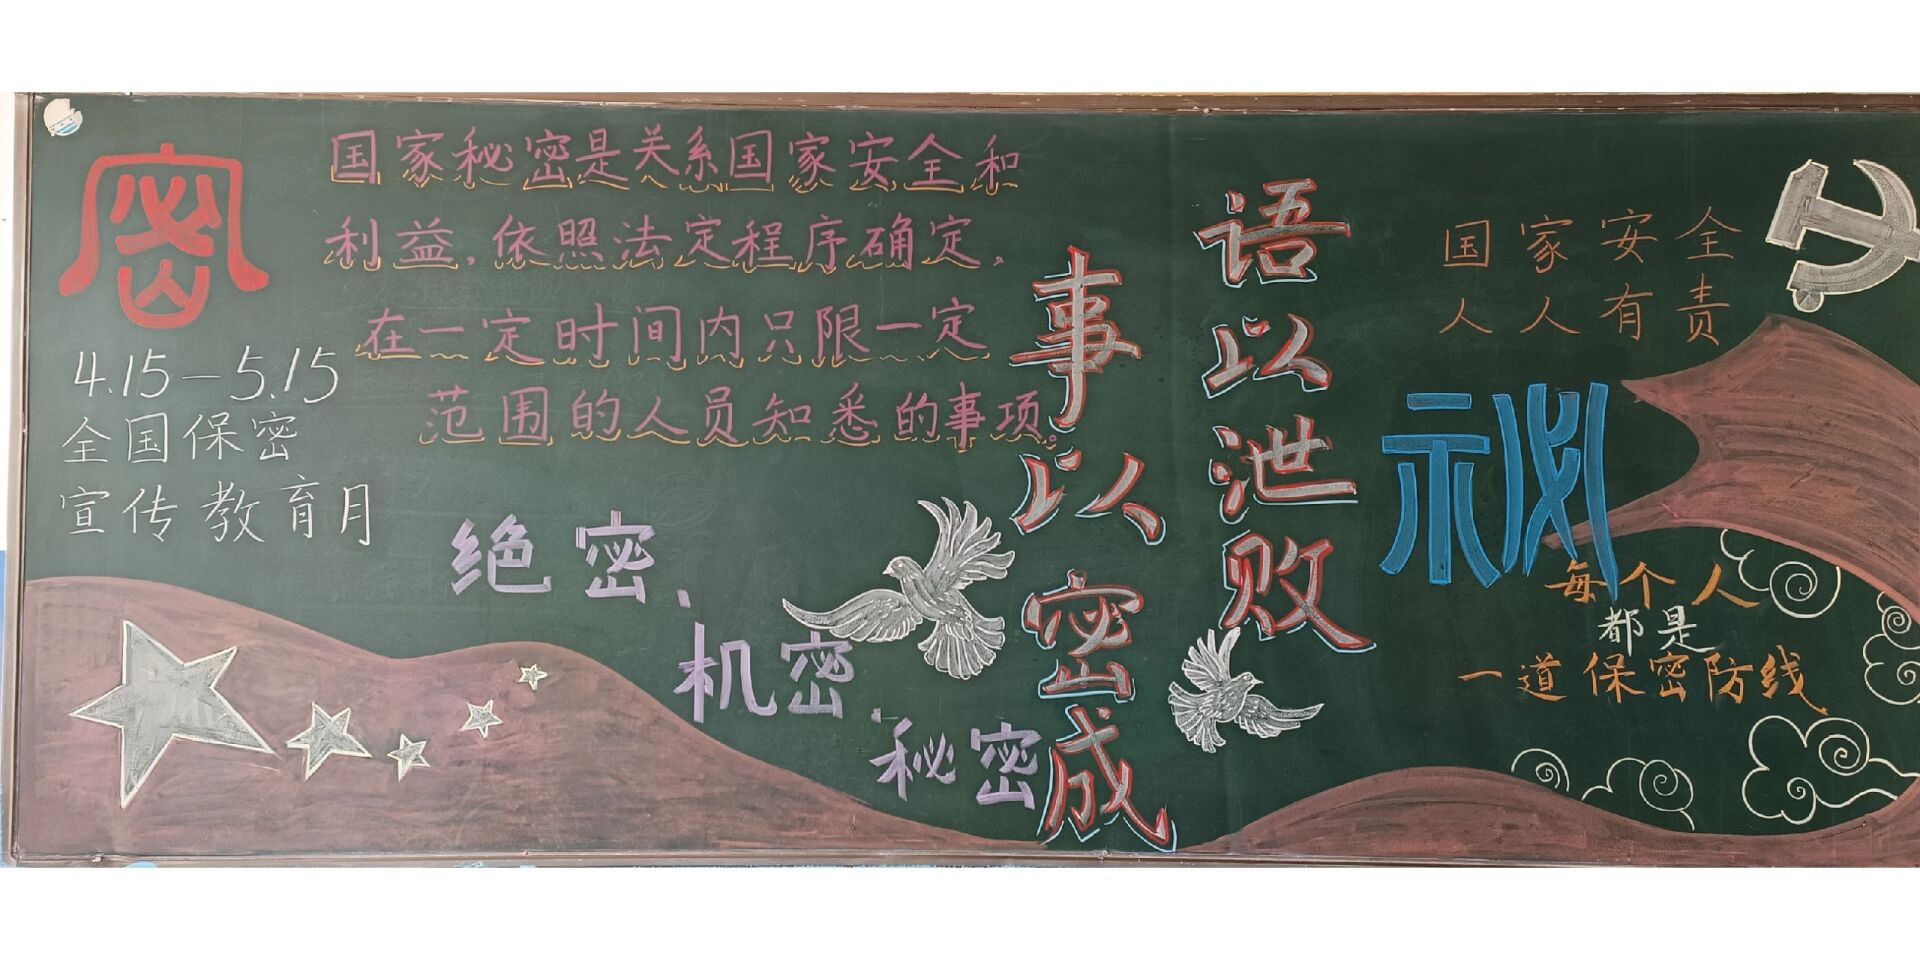 密
4.15-5.15
全国保密
宣传教育月
国家秘密是关系国家安全和
利益,依照法定程序确定,
在一定时间内只限一定
范围的人员知悉的事项。
绝密、
机密、
秘密
事以密成
语以泄败
国家安全
人人有责
秘
每个人
都是
一道保密防线